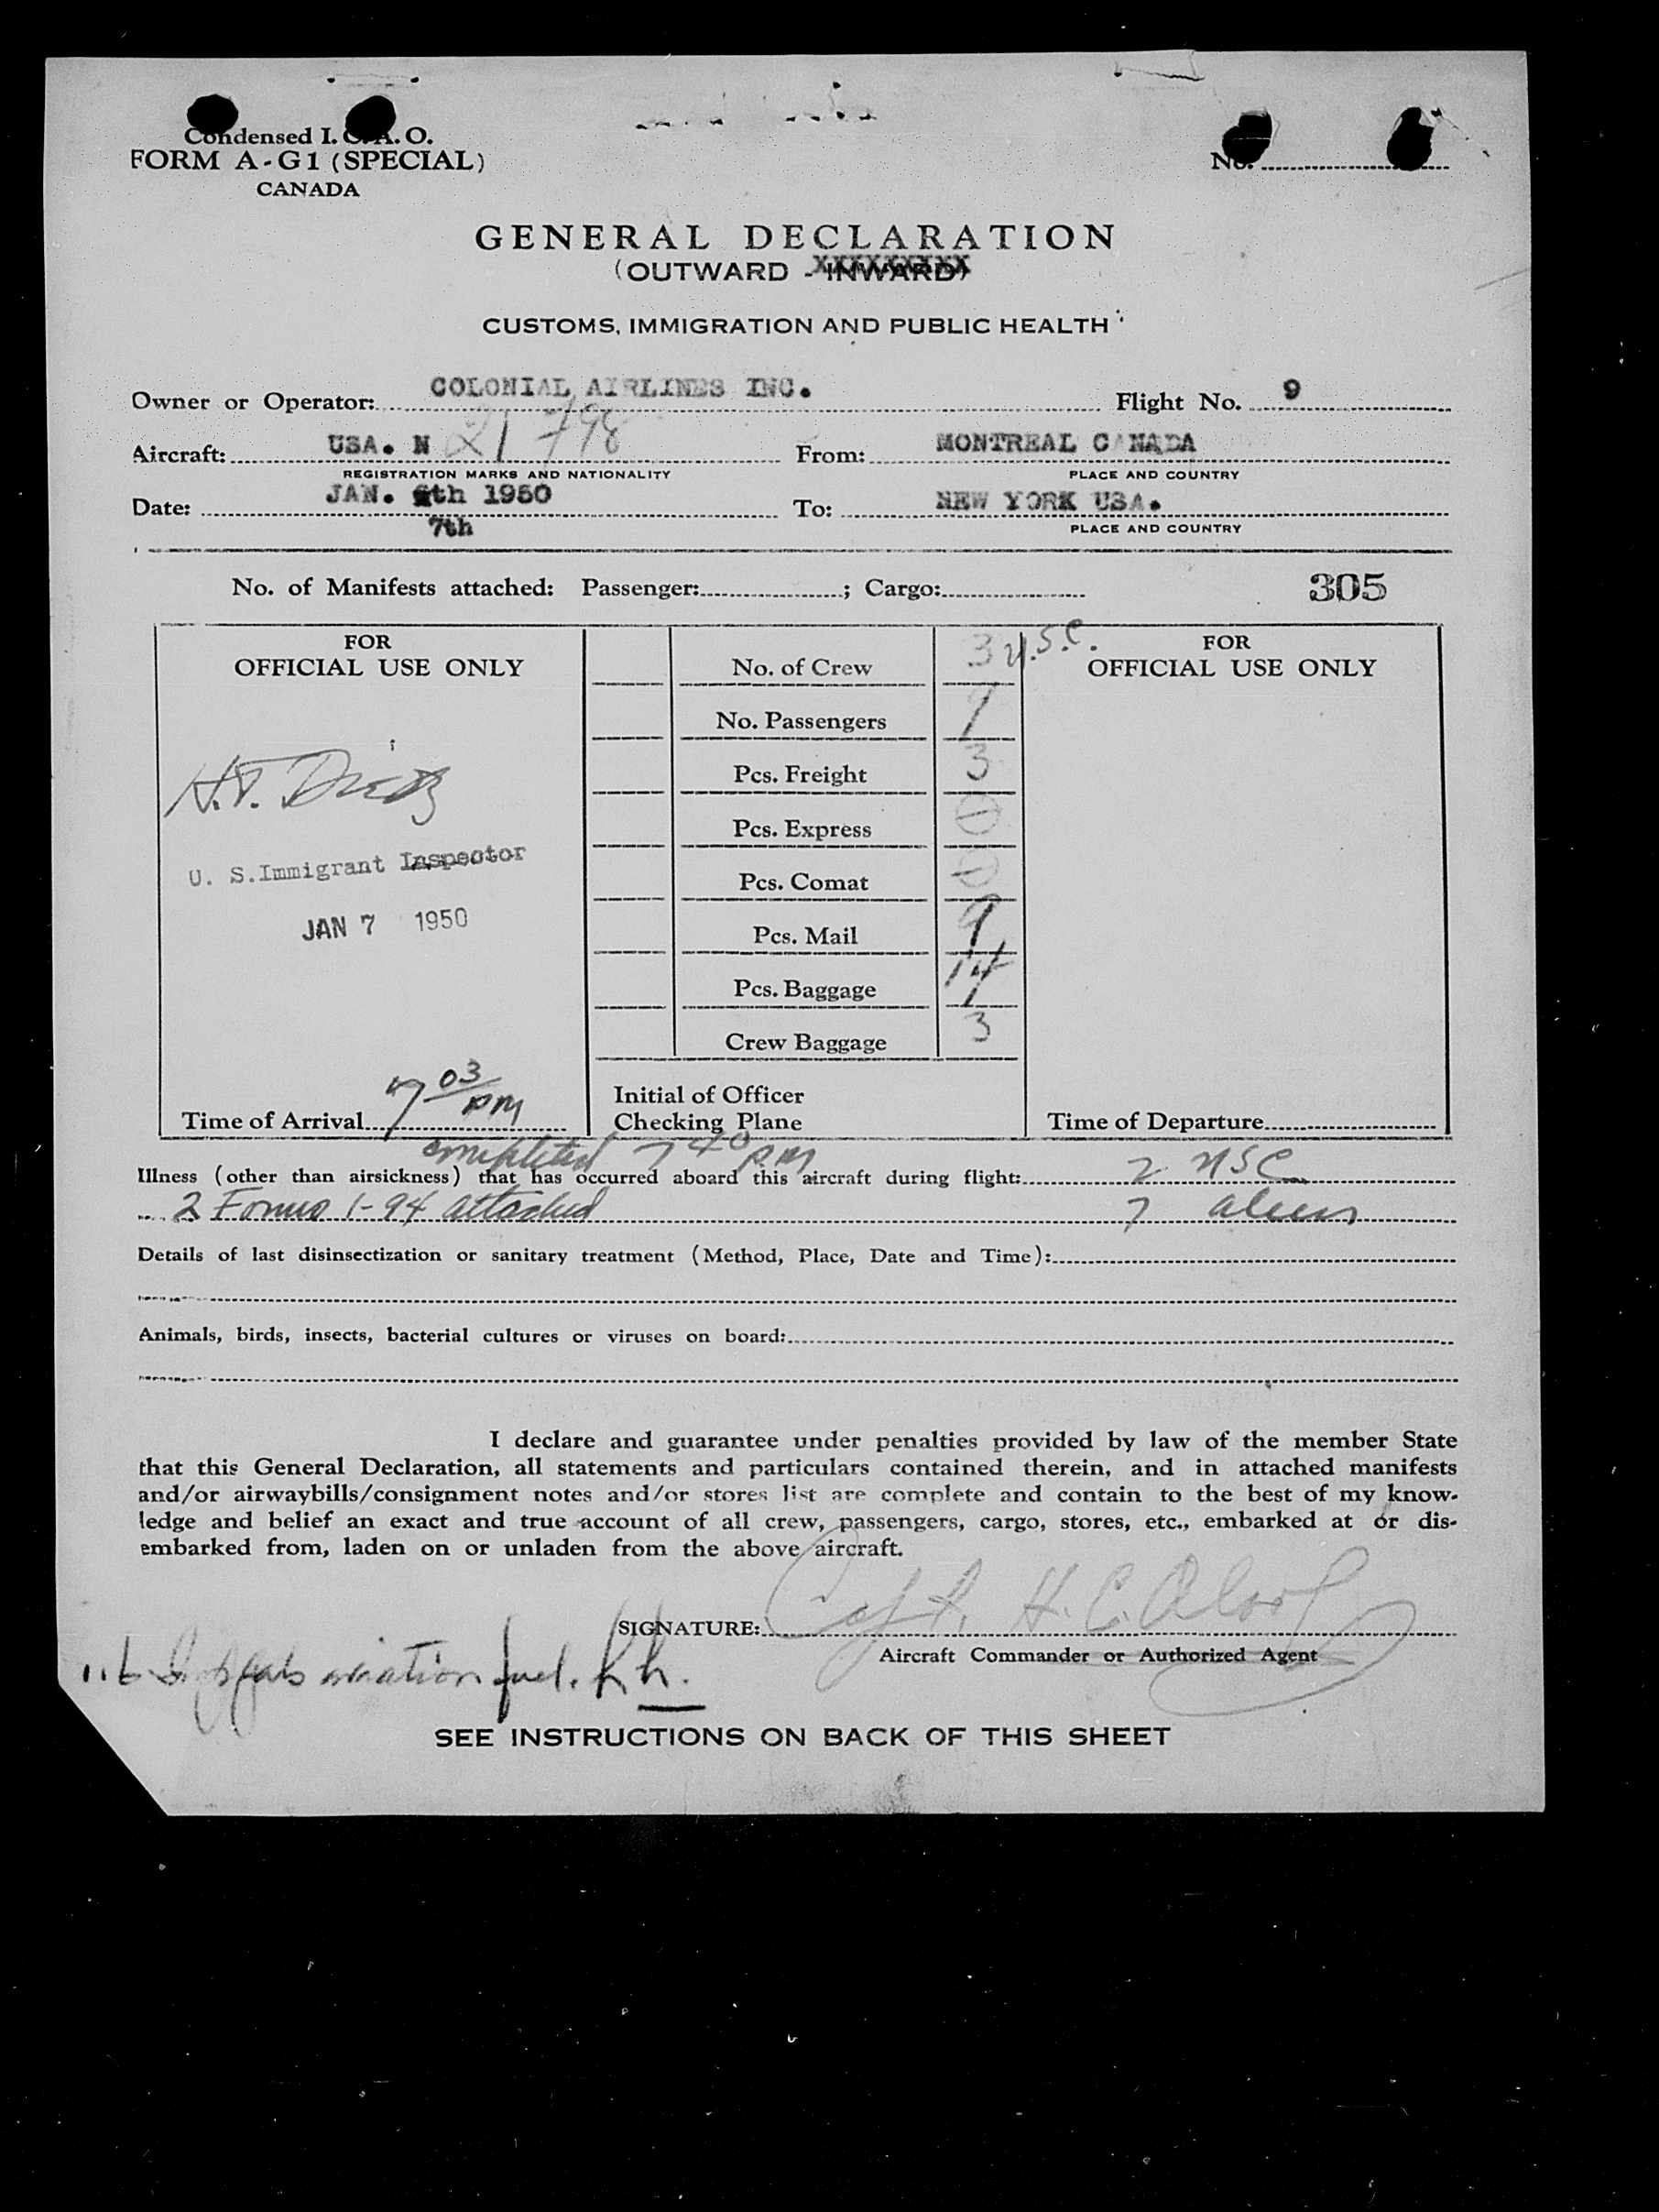 Condensed I. C. A. O.
FORM A-G1 (SPECIAL)
CANADA
No.
GENERAL DECLARATION
(OUTWARD - INWARD)
CUSTOMS, IMMIGRATION AND PUBLIC HEALTH
Owner or Operator: COLONIAL AIRLINES INC. Flight No. 9
Aircraft: USA. N 21798 From: MONTREAL CANADA
REGISTRATION MARKS AND NATIONALITY PLACE AND COUNTRY
Date: JAN. 6th 1950 To: NEW YORK USA.
7th PLACE AND COUNTRY
No. of Manifests attached: Passenger: ; Cargo: 305
FOR
OFFICIAL USE ONLY
H.T.
U. S. Immigrant Inspector
JAN 7 1950
Time of Arrival 7 03 PM
No. of Crew 3 U.S.C.
No. Passengers 9
Pcs. Freight 3
Pcs. Express
Pcs. Comat
Pcs. Mail 9
Pcs. Baggage 14
Crew Baggage 3
Initial of Officer
Checking Plane
FOR
OFFICIAL USE ONLY
Time of Departure
completed 7 40 PM
Illness (other than airsickness) that has occurred aboard this aircraft during flight: 2 USC
2 Forms 1-94 attached 7 aliens
Details of last disinsectization or sanitary treatment (Method, Place, Date and Time):
Animals, birds, insects, bacterial cultures or viruses on board:
I declare and guarantee under penalties provided by law of the member State
that this General Declaration, all statements and particulars contained therein, and in attached manifests
and/or airwaybills/consignment notes and/or stores list are complete and contain to the best of my know-
ledge and belief an exact and true account of all crew, passengers, cargo, stores, etc., embarked at or dis-
embarked from, laden on or unladen from the above aircraft.
SIGNATURE: Capt. H. C.
Aircraft Commander or Authorized Agent
aviation fuel.
SEE INSTRUCTIONS ON BACK OF THIS SHEET